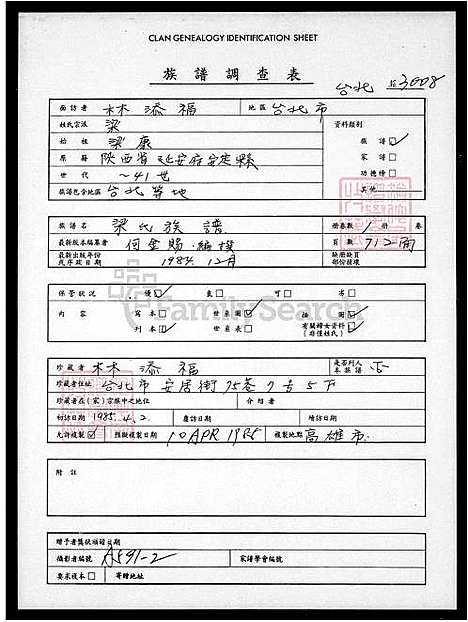 CLAN GENEALOGY IDENTIFICATION SHEET
族譜調查表
台北 3008
面訪者 林添福 地區 台北市
姓氏宗派 梁 資料類別
始祖 梁康 族譜 ☑
原籍 陝西省延安府安定縣 家譜 □
世代 ～41世 功德榜 □
族譜包含地區 台北等地 其他
譜名 梁氏族譜 冊卷數 1 冊 卷
最新版本編纂者 何金賜·編撰 頁數 712面
最新出版年份或序跋日期 1984.12月 缺冊缺頁部份條碼
保管狀況 優 ☑ 良 □ 可 □ 劣 □
內容 寫本 □ 世系圖 ☑ 插圖 ☑
刊本 ☑ 世系表 □ 有關歸女資料 (非僅姓氏)
珍藏者 林添福 是否列入本族譜 否
珍藏者住址 台北市安居街75巷7号5下
珍藏者在(家)宗族中之地位 介紹者
初訪日期 1985.4.2. 覆訪日期 續訪日期
允許複製 ☑ 擬擬複製日期 10 APR 1985 複製地點 高雄市
附註
贈予者獎狀頒贈日期
攝影者編號 A591-2 家譜學會編號
要求複本 □ 寄贈地址
FamilySearch